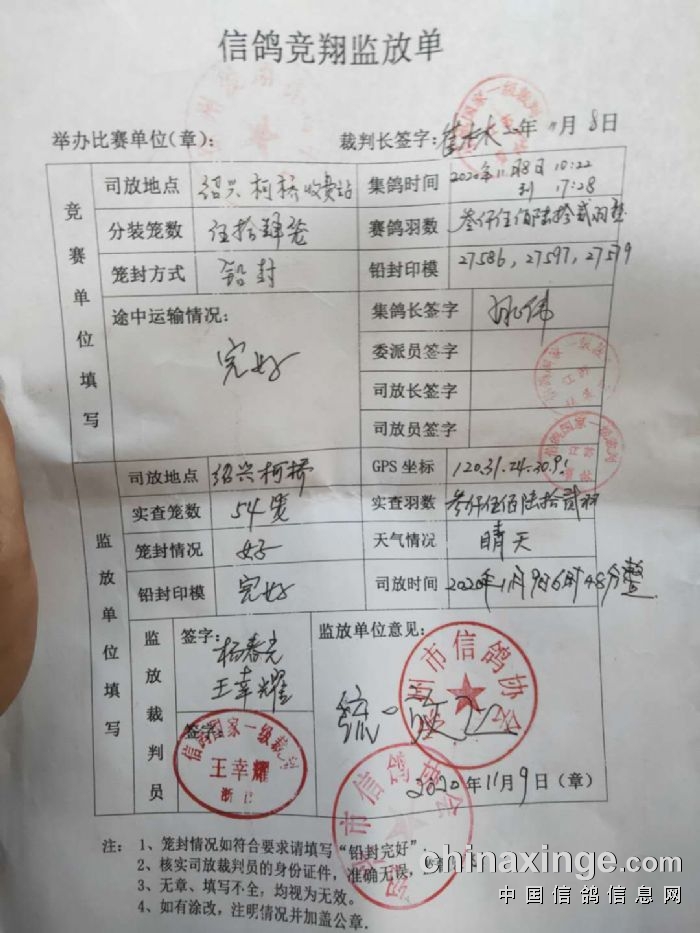 信鸽竞翔监放单
举办比赛单位(章): 裁判长签字: 年11月8日
竞赛单位填写
司放地点 绍兴柯桥收费站 集鸽时间 2020年11月8日 10:22 到 17:28
分装笼数 伍拾肆笼 赛鸽羽数 叁仟伍佰陆拾贰羽整
笼封方式 铅封 铅封印模 27586,27597,27579
途中运输情况: 完好 集鸽长签字
委派员签字
司放长签字
司放员签字
监放单位填写
司放地点 绍兴柯桥 GPS 坐标
实查笼数 54笼 实查羽数 叁仟伍佰陆拾贰羽
笼封情况 好 天气情况 晴天
铅封印模 完好 司放时间 2020年11月9日6时48分整
监放裁判员
签字: 杨春光
王幸耀
签字:
信鸽国家一级裁判
王幸耀
浙江
监放单位意见:
州市信鸽协会
2020年11月9日(章)
市信鸽协会
注: 1、笼封情况如符合要求请填写“铅封完好”.
2、核实司放裁判员的身份证件,准确无误,
3、无章、填写不全,均视为无效。
4、如有涂改,注明情况并加盖公章.
chinaxinge.com
中国信鸽信息网